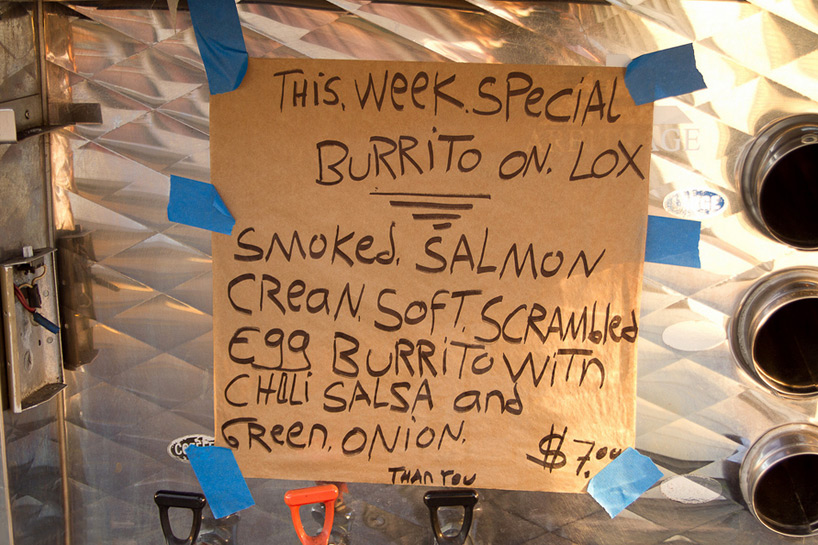 THIS. WEEK. SPECIAL
BURRITO ON. LOX
SMOKED. SALMON
CREAN. SOFT. SCRAMBLED
EGG BURRITO WITH
CHILI SALSA and
GREEN. ONION.
$7.00
THAN YOU